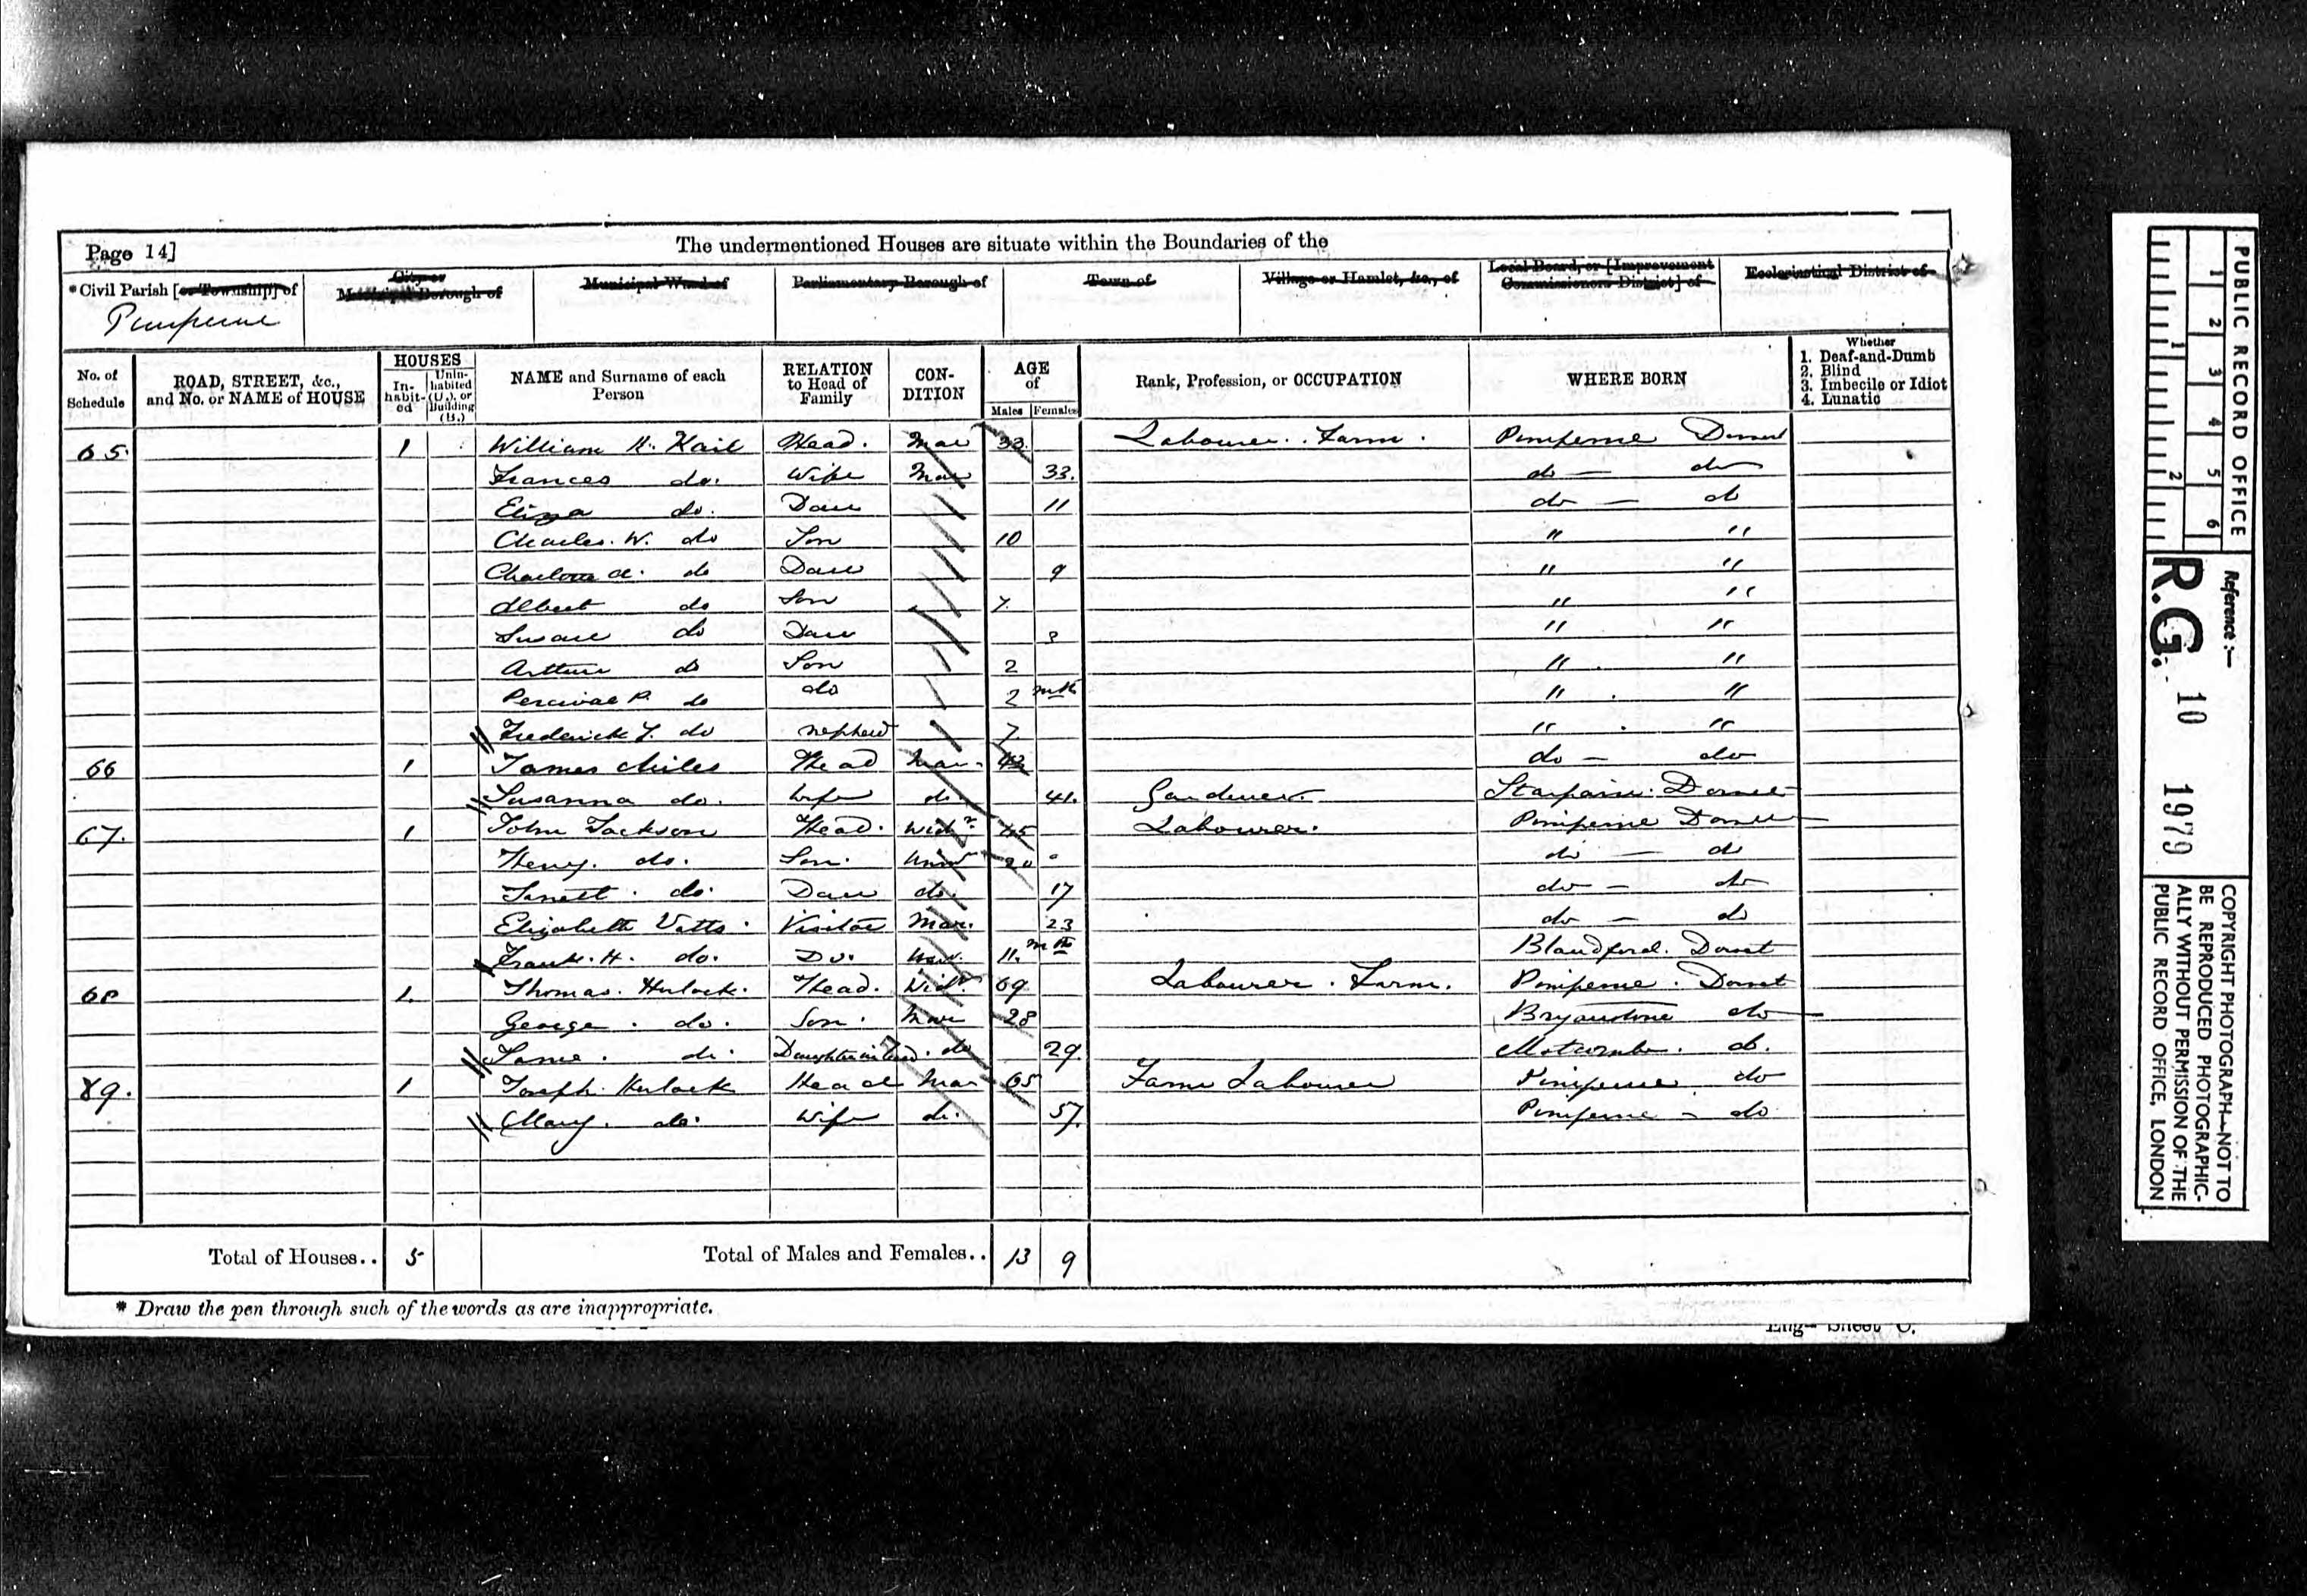 Page 14]
The undermentioned Houses are situate within the Boundaries of the
*Civil Parish [or Township] of
City or Municipal Borough of
Municipal Ward of
Parliamentary Borough of
Town of
Village or Hamlet, &c., of
Local Board, or [Improvement Commissioners District] of
Ecclesiastical District of
Pimperne
No. of Schedule
ROAD, STREET, &c., and No. or NAME of HOUSE
HOUSES
In-habit-ed
Unin-habited (U.), or Building (B.)
NAME and Surname of each Person
RELATION to Head of Family
CON-DITION
AGE of
Males
Females
Rank, Profession, or OCCUPATION
WHERE BORN
Whether
1. Deaf-and-Dumb
2. Blind
3. Imbecile or Idiot
4. Lunatic
65. 1 William H. Head. Mar 33 Labourer. Farm. Pimperne Dorset
Frances do. Wife Mar 33. do — do
Eliza do. Dau 11 do — do
Charles. W. do Son 10 " "
do Daur 9 " "
Albert do Son 7. " "
Susan do Daur 3 " "
Arthur do Son 2 " "
Percival P. do do 2 mth " "
Frederick do nephew 7 " "
66 1 James Miles Head Mar. 42 do — do
Susanna do. Wife do. 41. Gardener. Dorset
67. 1 John Jackson Head. Widr. 45 Labourer. Pimperne Dorset
Henry. do. Son. Unm 20 do — do
do. Dau do. 17 do — do
Elizabeth Vatts. Visitor Mar. 23 do — do
Frank. H. do. Do. Unm. 11. mth Blandford. Dorset
68 1. Thomas. Head. Widr. 69 Labourer. Farm. Pimperne. Dorset
George. do. Son. Mar 28 Bryanstone do
Jane. do. Daughter in law. do 29 Motcombe. do.
69. 1 Joseph. Head Mar 65 Farm Labourer Pimperne do
Mary. do. Wife do. 57. Pimperne — do
Total of Houses.. 5
Total of Males and Females.. 13 9
* Draw the pen through such of the words as are inappropriate.
Eng— Sheet C.
PUBLIC RECORD OFFICE
1 2 3 4 5 6
1 2
Reference :—
R.G. 10 1979
COPYRIGHT PHOTOGRAPH—NOT TO
BE REPRODUCED PHOTOGRAPHIC-
ALLY WITHOUT PERMISSION OF THE
PUBLIC RECORD OFFICE, LONDON